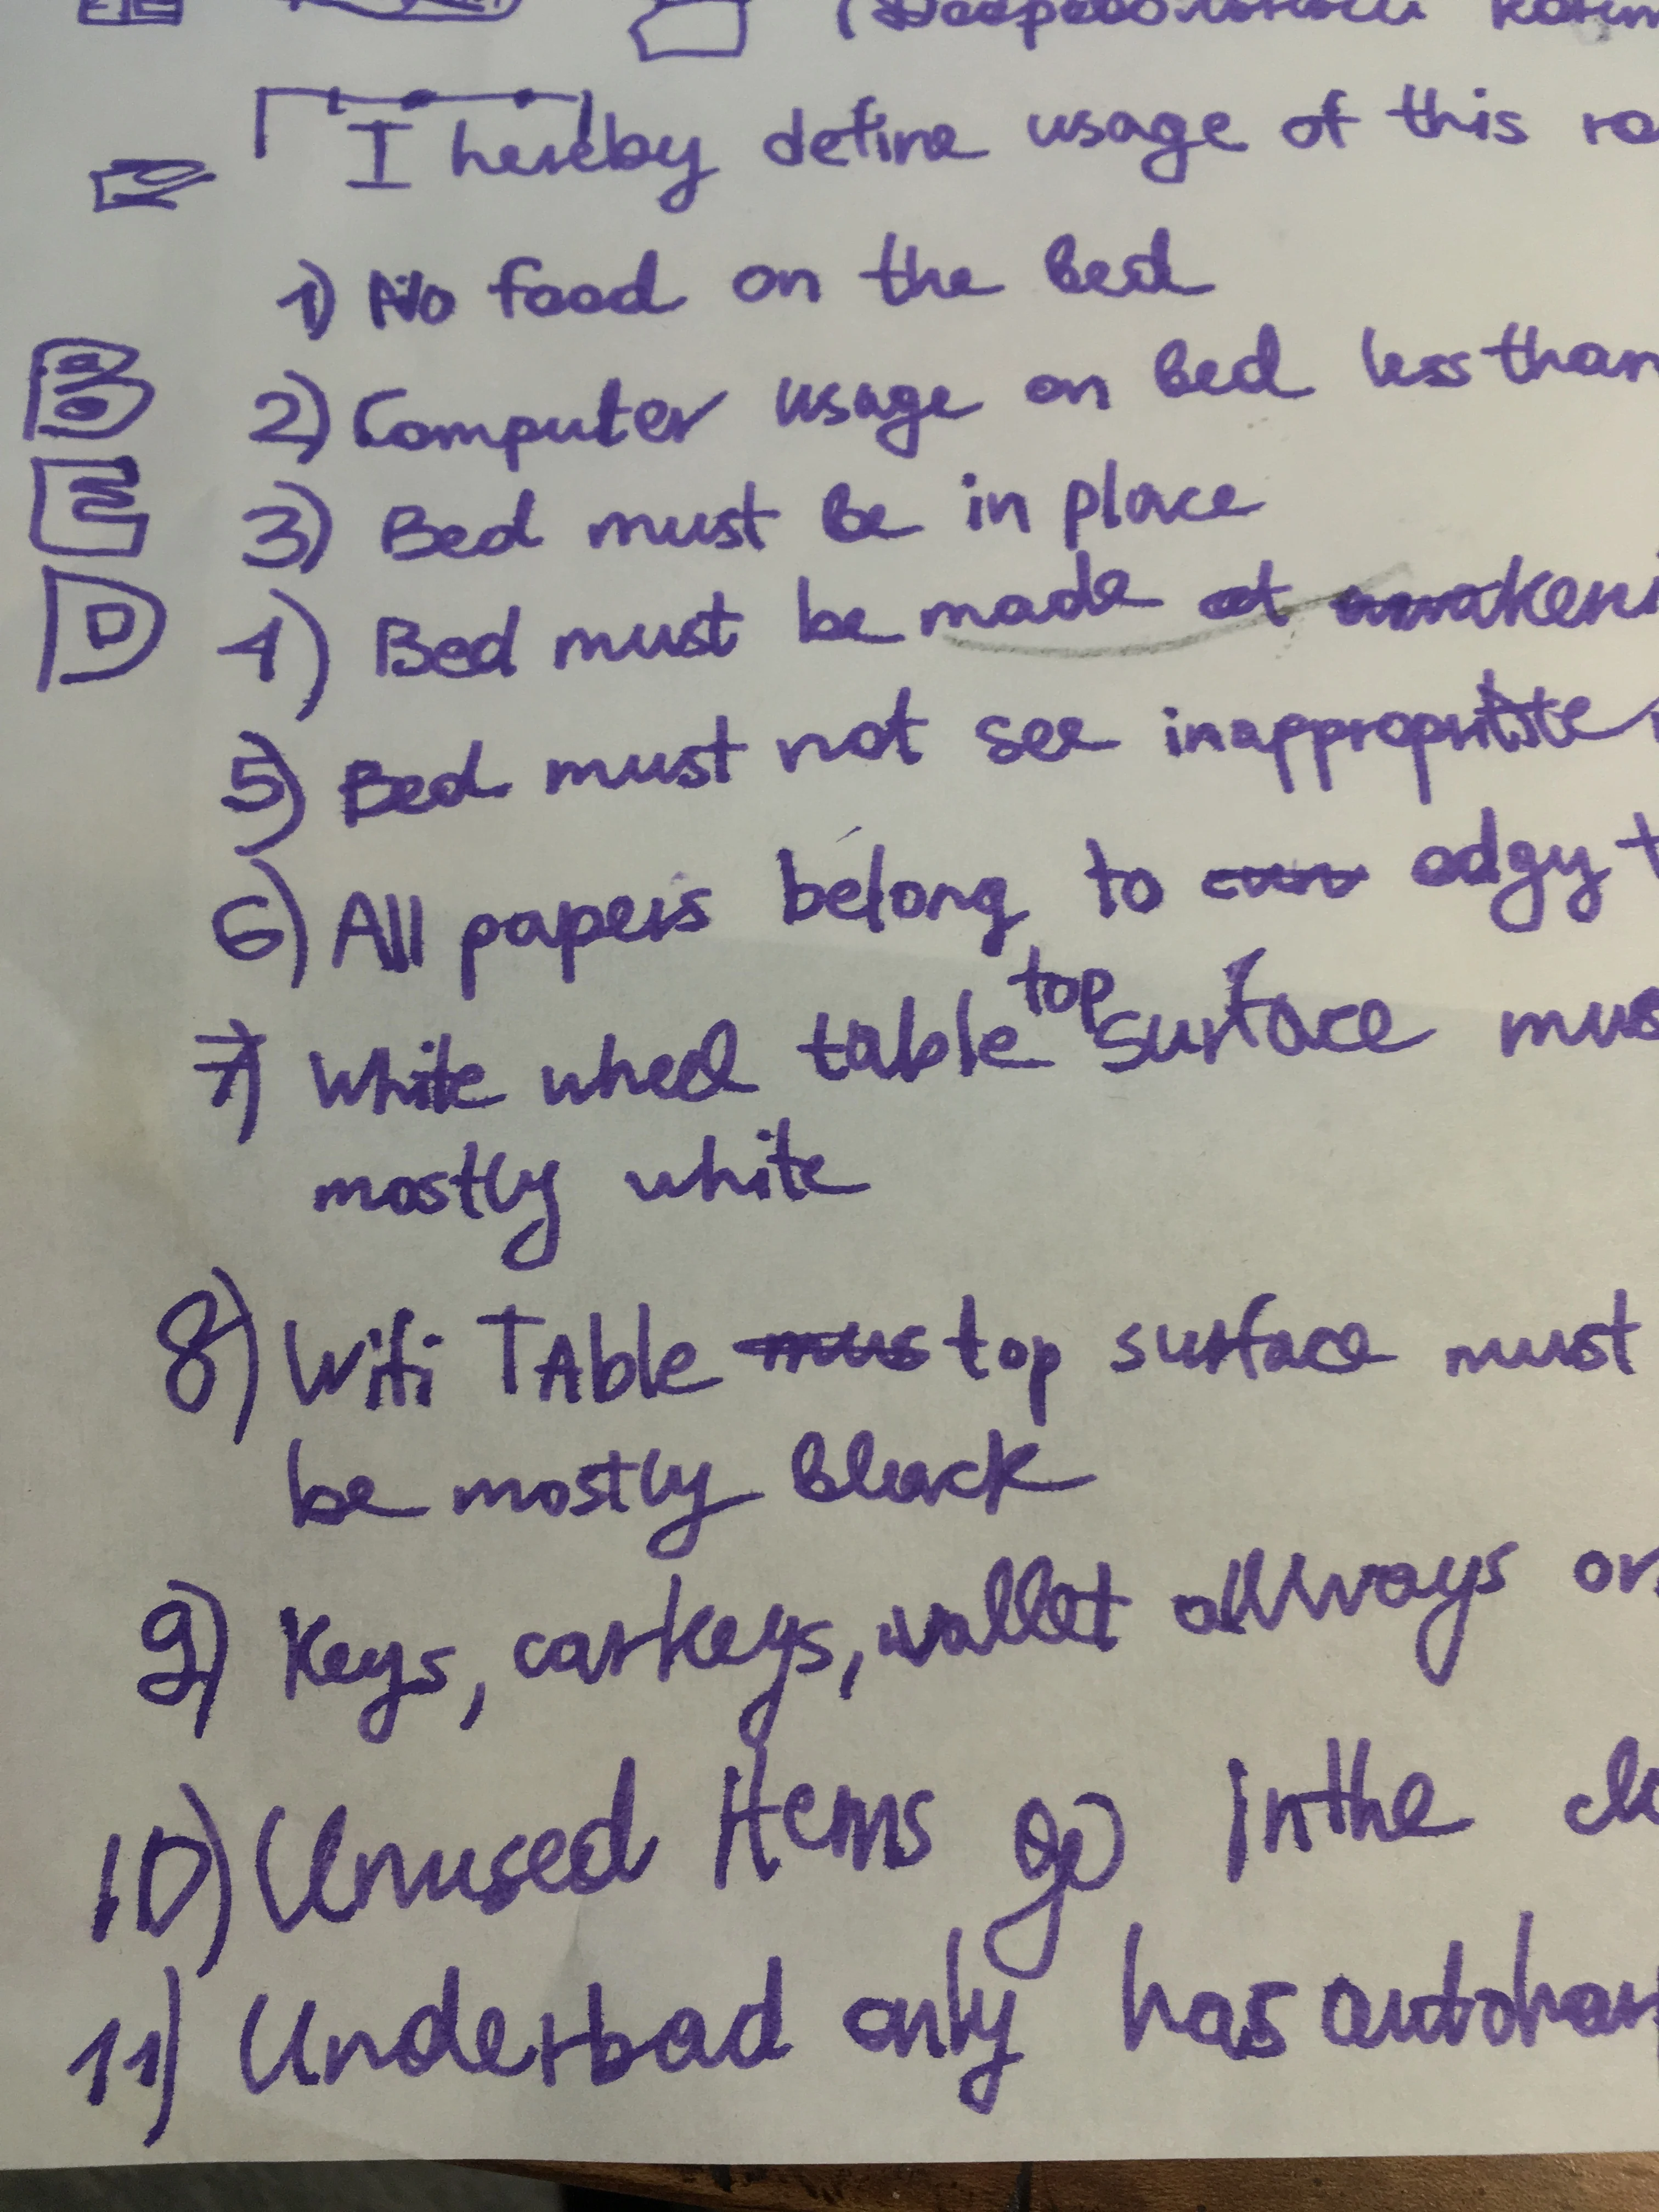 I hereby define usage of this
1) No food on the bed
B
2) Computer usage on bed less than
E
3) Bed must be in place
D
4) Bed must be made at
5) Bed must not see
6) All papers belong to edgy
7) White wheel table top surface
mostly white
8) Wifi TAble top surface must
be mostly black
9) Keys, carkeys, wallet allways
10) Unused Items go in the
11) Underbad only has